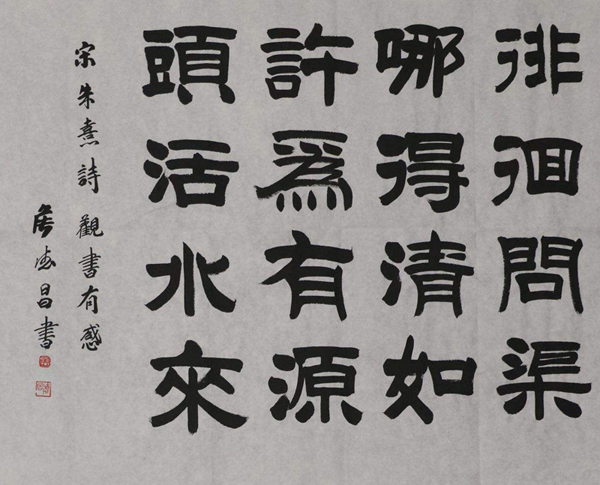 徘徊問渠
哪得清如
許爲有源
頭活水來
宋朱熹詩觀書有感
德昌書